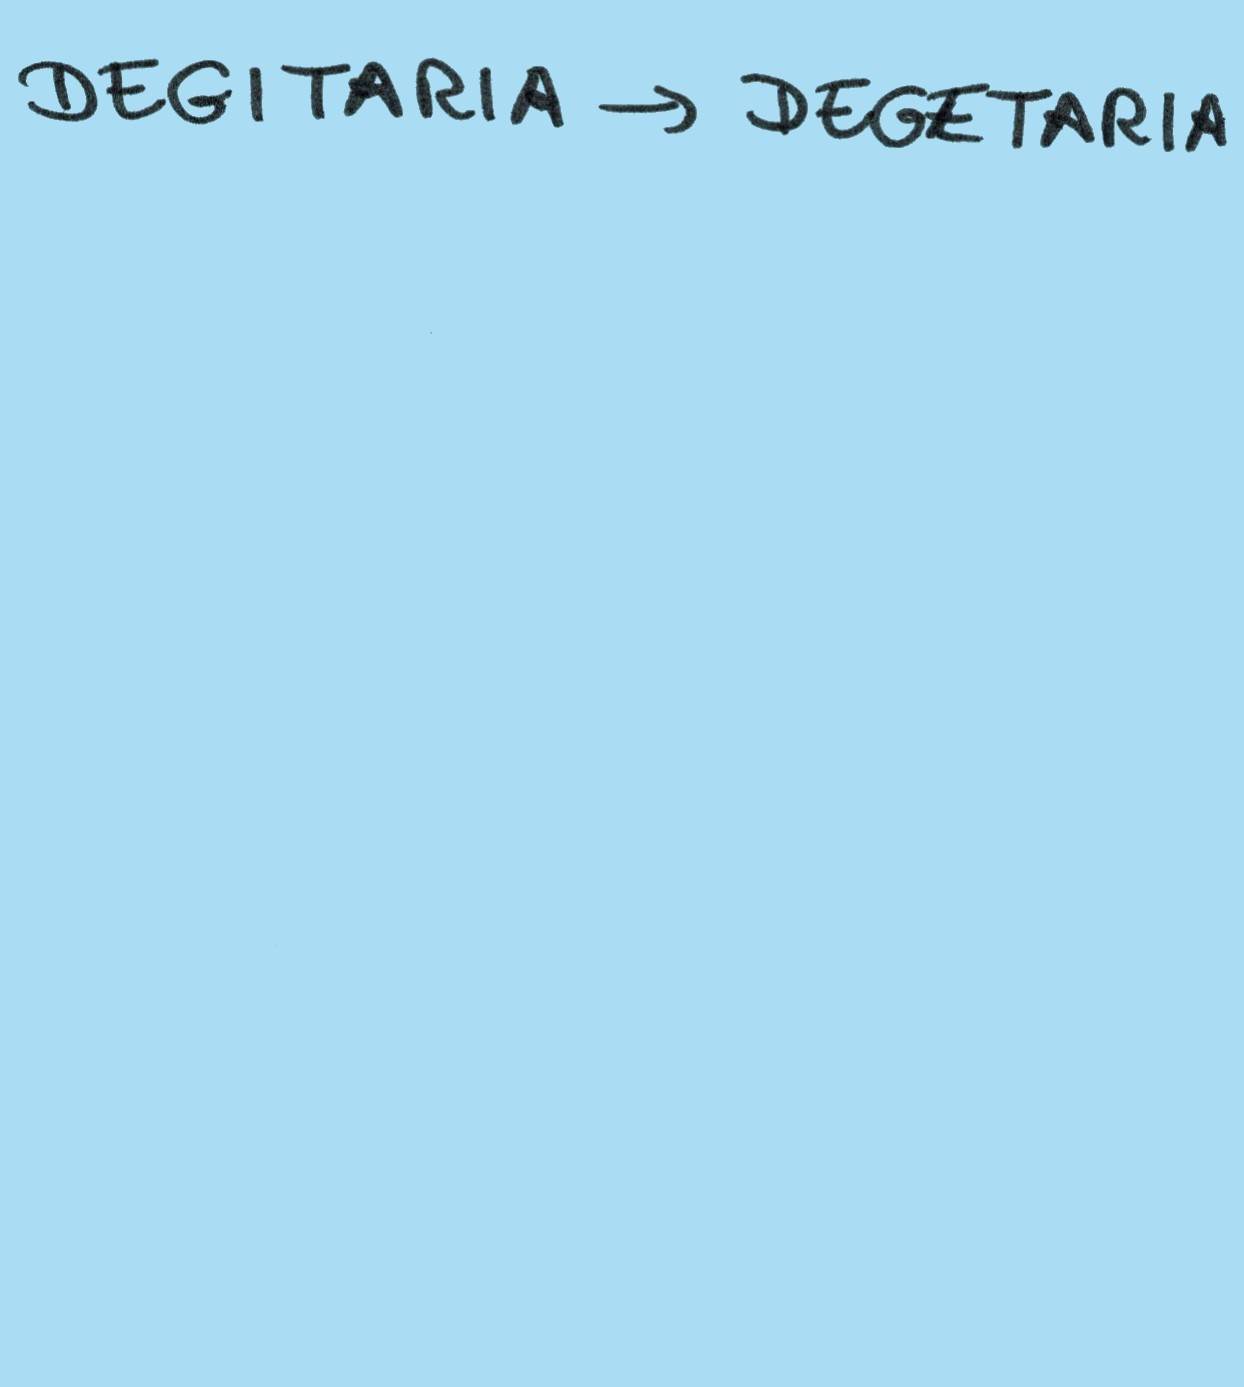 DEGITARIA → DEGETARIA